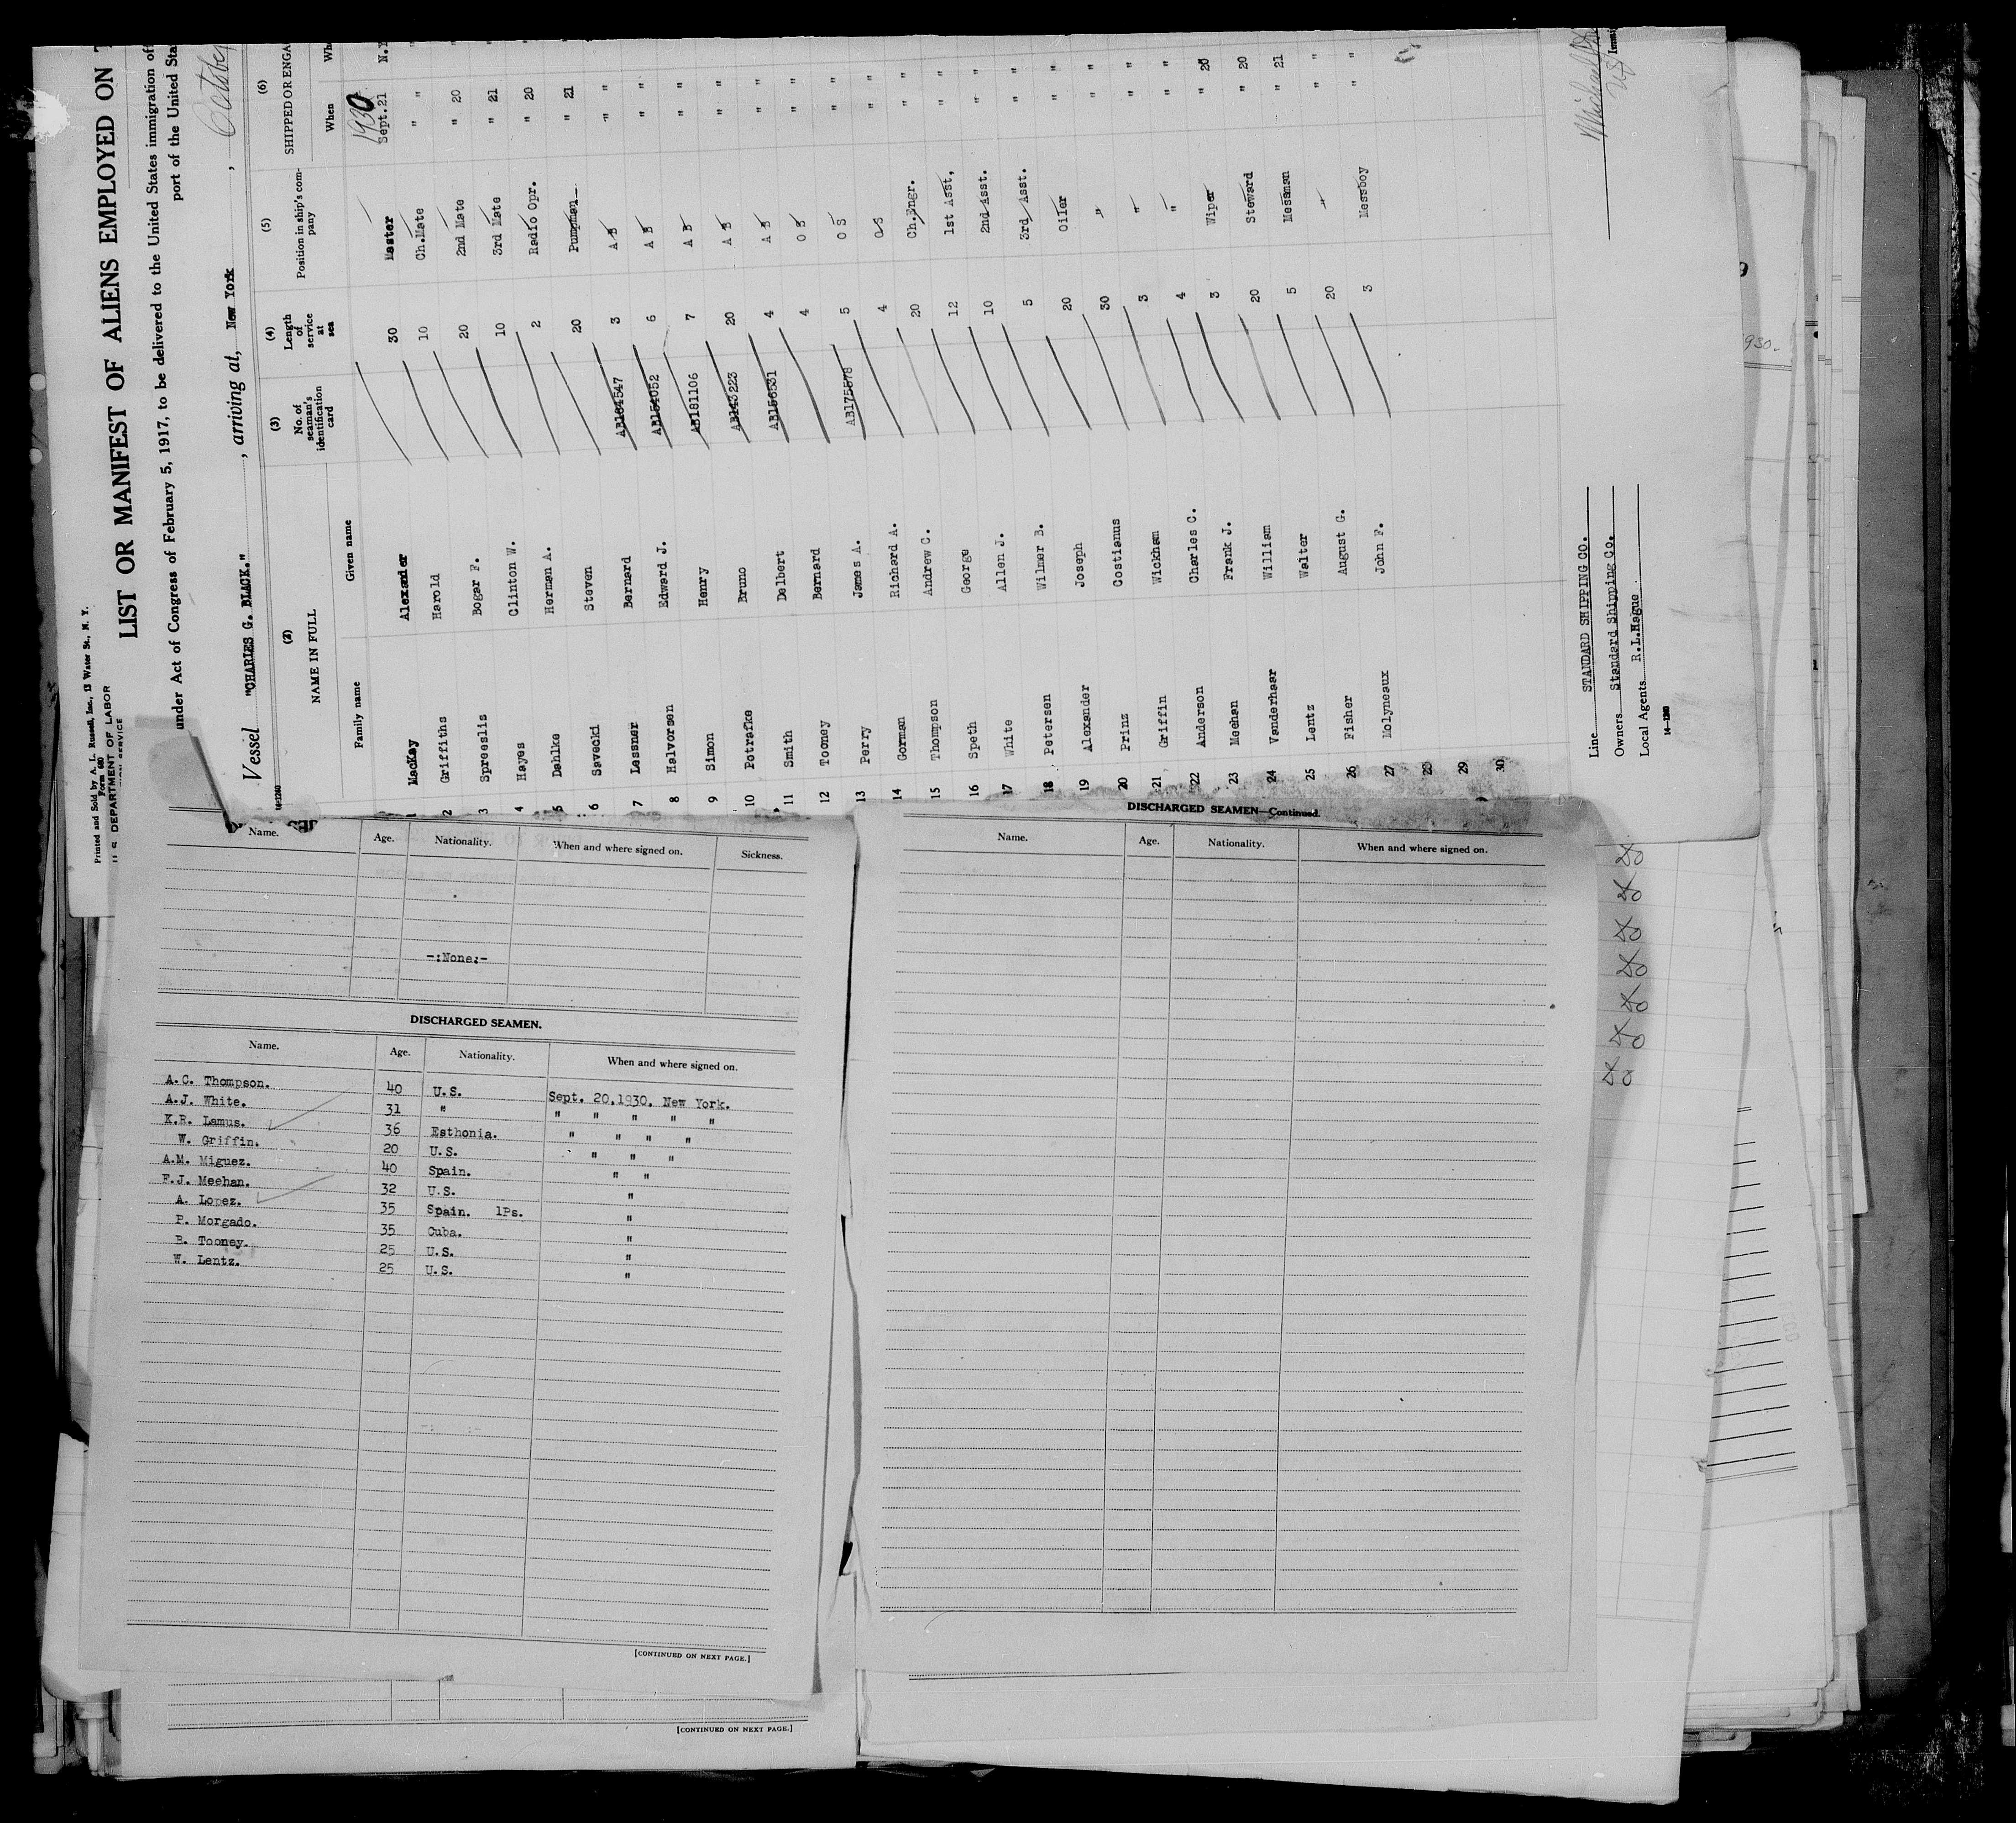 Printed and Sold by A. L. Russell, Inc., 13 Water St., N. Y.
Form 680
U. S. DEPARTMENT OF LABOR
LIST OR MANIFEST OF ALIENS EMPLOYED ON
under Act of Congress of February 5, 1917, to be delivered to the United States immigration
port of the United
Vessel "CHARLES G. BLACK." , arriving at, New York , October
14-1240
(2) (3) (4) (5) (6)
NAME IN FULL No. of seaman's identification card Length of service at sea Position in ship's company SHIPPED OR
Family name Given name When
1930
1 MacKay Alexander 30 Master Sept.21 N.Y
2 Griffiths Harold 10 Ch.Mate " " "
3 Spreeslis Bogar F. 20 2nd Mate " 20 "
4 Hayes Clinton W. 10 3rd Mate " 21 "
5 Dahlke Herman A. 2 Radio Opr. " 20 "
6 Savecki Steven 20 Pumpman " 21 "
7 Lessner Bernard AB164547 3 A B " "
8 Halvorsen Edward J. AB154052 6 A B " "
9 Simon Henry AB181106 7 A B " "
10 Potrafke Bruno AB143223 20 A B " "
11 Smith Delbert AB156531 4 A B " "
12 Tooney Bernard 4 O S " "
13 Perry James A. AB175578 5 O S " "
14 Gorman Richard A. 4 O S " "
15 Thompson Andrew C. 20 Ch.Engr. " "
16 Speth George 12 1st Asst, " "
17 White Allen J. 10 2nd Asst. " "
18 Petersen Wilmer B. 5 3rd Asst. " "
19 Alexander Joseph 20 Oiler " "
20 Prinz Costianus 30 " " "
21 Griffin Wickham 3 " " "
22 Anderson Charles C. 4 " " "
23 Meehan Frank J. 3 Wiper " 20
24 Vanderhaar William 20 Steward " 20
25 Lentz Walter 5 Messman " 21
26 Fisher August G. 20 " " "
27 Molyneaux John F. 3 Messboy " "
28
29
30
Line STANDARD SHIPPING CO.
Owners Standard Shipping Co.
Local Agents R.L.Hague
14-1240
Name. Age. Nationality. When and where signed on. Sickness.
-:None:-
DISCHARGED SEAMEN.
Name. Age. Nationality. When and where signed on.
A.C. Thompson. 40 U.S. Sept. 20,1930, New York.
A.J. White. 31 " " " " " "
K.R. Lamus. 36 Esthonia. " " " "
W. Griffin. 20 U.S. " " "
A.M. Miguez. 40 Spain. " "
F.J. Meehan. 32 U.S. "
A. Lopez. 35 Spain. 1Ps. "
P. Morgado. 35 Cuba. "
B. Tooney. 25 U.S. "
W. Lentz. 25 U.S. "
[CONTINUED ON NEXT PAGE.]
[CONTINUED ON NEXT PAGE.]
DISCHARGED SEAMEN—Continued.
Name. Age. Nationality. When and where signed on.
930.